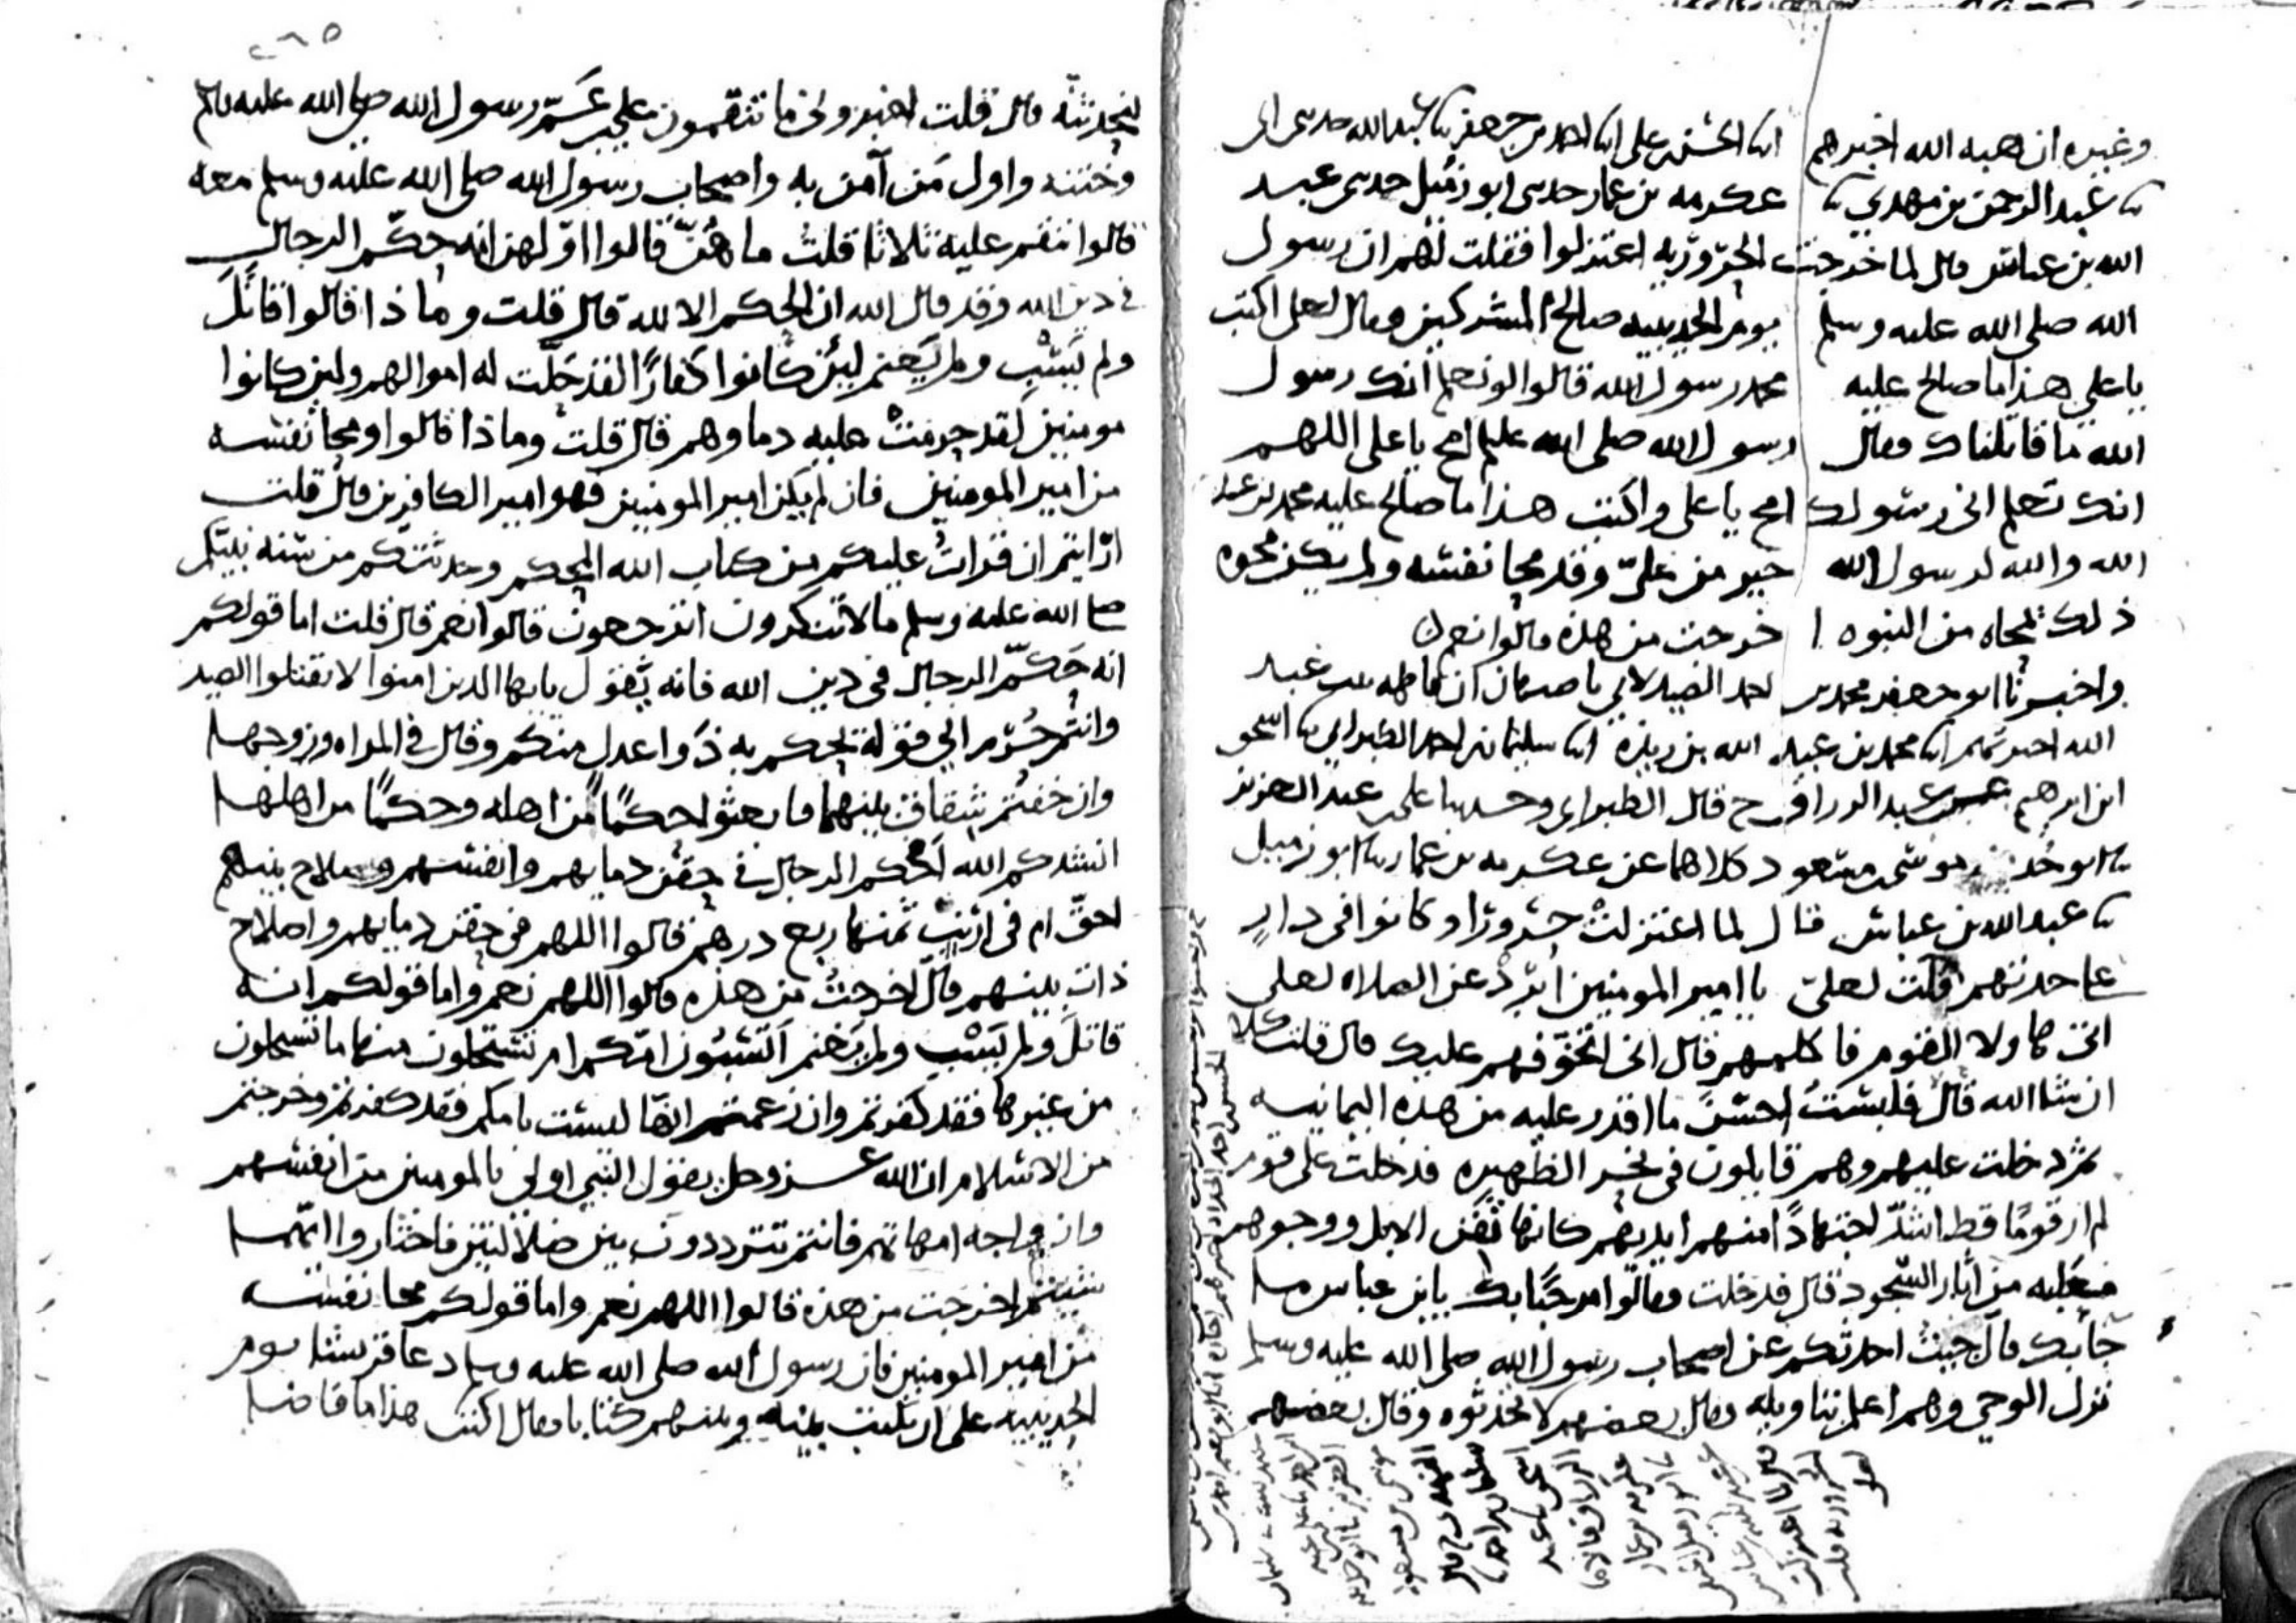 وغيره ان هبه الله اخبرهم ابنا الحسن بن علي ابنا احمد بن جعفر ثنا عبد الله حدثني ابي
ثنا عبد الرحمن بن مهدي ثنا عكرمه بن عمار حدثني ابو زميل حدثني عبد
الله بن عباس قال لما خرجت الحروريه اعتزلوا فقلت لهم ان رسول
الله صلى الله عليه وسلم يوم الحديبيه صالح المشركين وقال لعلي اكتب
يا علي هذا ما صالح عليه محمد رسول الله قالوا لو نعلم انك رسول
الله ما قاتلناك وقال رسول الله صلى الله عليه امح يا علي اللهم
انك تعلم اني رسولك امح يا علي واكتب هذا ما صالح عليه محمد بن عبد
الله والله لرسول الله خير من علي وقد محا نفسه ولم يكن محوه
ذلك محاه من النبوه اخرجت من هذه قالوا نعم
واخبرنا ابو جعفر محمد بن احمد الصيدلاني باصبهان ان فاطمه بنت عبد
الله اخبرتهم ابنا محمد بن عبد الله بن ريذة ابنا سليمان بن احمد الطبراني ثنا اسحق
ابن ابرهيم عن عبد الرزاق ح قال الطبراني وحدثنا علي بن عبد العزيز
ثنا ابو حذيفه موسى بن مسعود كلاهما عن عكرمه بن عمار ثنا ابو زميل
ثنا عبد الله بن عباس قال لما اعتزلت حرورا وكانوا في دار
على حدتهم قلت لعلي يا امير المومنين ابرد عن الصلاه لعلي
اتي هاولا القوم فاكلمهم قال اني اتخوفهم عليك قال قلت كلا
ان شا الله قال فلبست احسن ما اقدر عليه من هذه اليمانيه
ثم دخلت عليهم وهم قايلون في نحر الظهيره فدخلت على قوم
لم ار قوما قط اشد اجتهادا منهم ايديهم كانها ثفن الابل ووجوهم
معلبه من آثار السجود قال فدخلت فقالوا مرحبا بك يا بن عباس ما
جا بك قال جيت احدثكم عن اصحاب رسول الله صلى الله عليه وسلم
نزل الوحي وهم اعلم بتاويله فقال بعضهم لا تحدثوه وقال بعضهم
٢٩٥
لنحدثنه قال قلت اخبروني ما تنقمون على بن عم رسول الله صلى الله عليه وسلم
وختنه واول من آمن به واصحاب رسول الله صلى الله عليه وسلم معه
قالوا ننقم عليه ثلاثا قلت ما هن قالوا اولهن انه حكم الرجال
في دين الله وقد قال الله ان الحكم الا لله قال قلت وماذا قالوا قاتل
ولم يسب ولم يغنم لين كانوا كفارا لقد حلت له اموالهم ولين كانوا
مومنين لقد حرمت عليه دماوهم قال قلت وماذا قالوا ومحا نفسه
من امير المومنين فان لم يكن امير المومنين فهو امير الكافرين قال قلت
ارايتم ان قرات عليكم من كتاب الله المحكم وحدثتكم من سنه نبيكم
صلى الله عليه وسلم ما لا تنكرون اترجعون قالوا نعم قال قلت اما قولكم
انه حكم الرجال في دين الله فانه يقول يا ايها الذين امنوا لا تقتلوا الصيد
وانتم حرم الى قوله يحكم به ذوا عدل منكم وقال في المراه وزوجها
وان خفتم شقاق بينهما فابعثوا حكما من اهله وحكما من اهلها
انشدكم الله احكم الرجال في حقن دمايهم وانفسهم وصلاح بينهم
احق ام في ارنب ثمنها ربع درهم قالوا اللهم في حقن دمايهم واصلاح
ذات بينهم قال اخرجت من هذه قالوا اللهم نعم واما قولكم انه
قاتل ولم يسب ولم يغنم اتسبون امكم ام تستحلون منها ما تستحلون
من غيرها فقد كفرتم وان زعمتم انها ليست بامكم فقد كفرتم وخرجتم
من الاسلام ان الله عز وجل يقول النبي اولى بالمومنين من انفسهم
وازواجه امهاتهم فانتم تترددون بين ضلالتين فاختاروا ايتهما
شيتم اخرجت من هذه قالوا اللهم نعم واما قولكم محا نفسه
من امير المومنين فان رسول الله صلى الله عليه وسلم دعا قريشا يوم
الحديبيه على ان يكتب بينه وبينهم كتابا فقال اكتب هذا ما قاضا